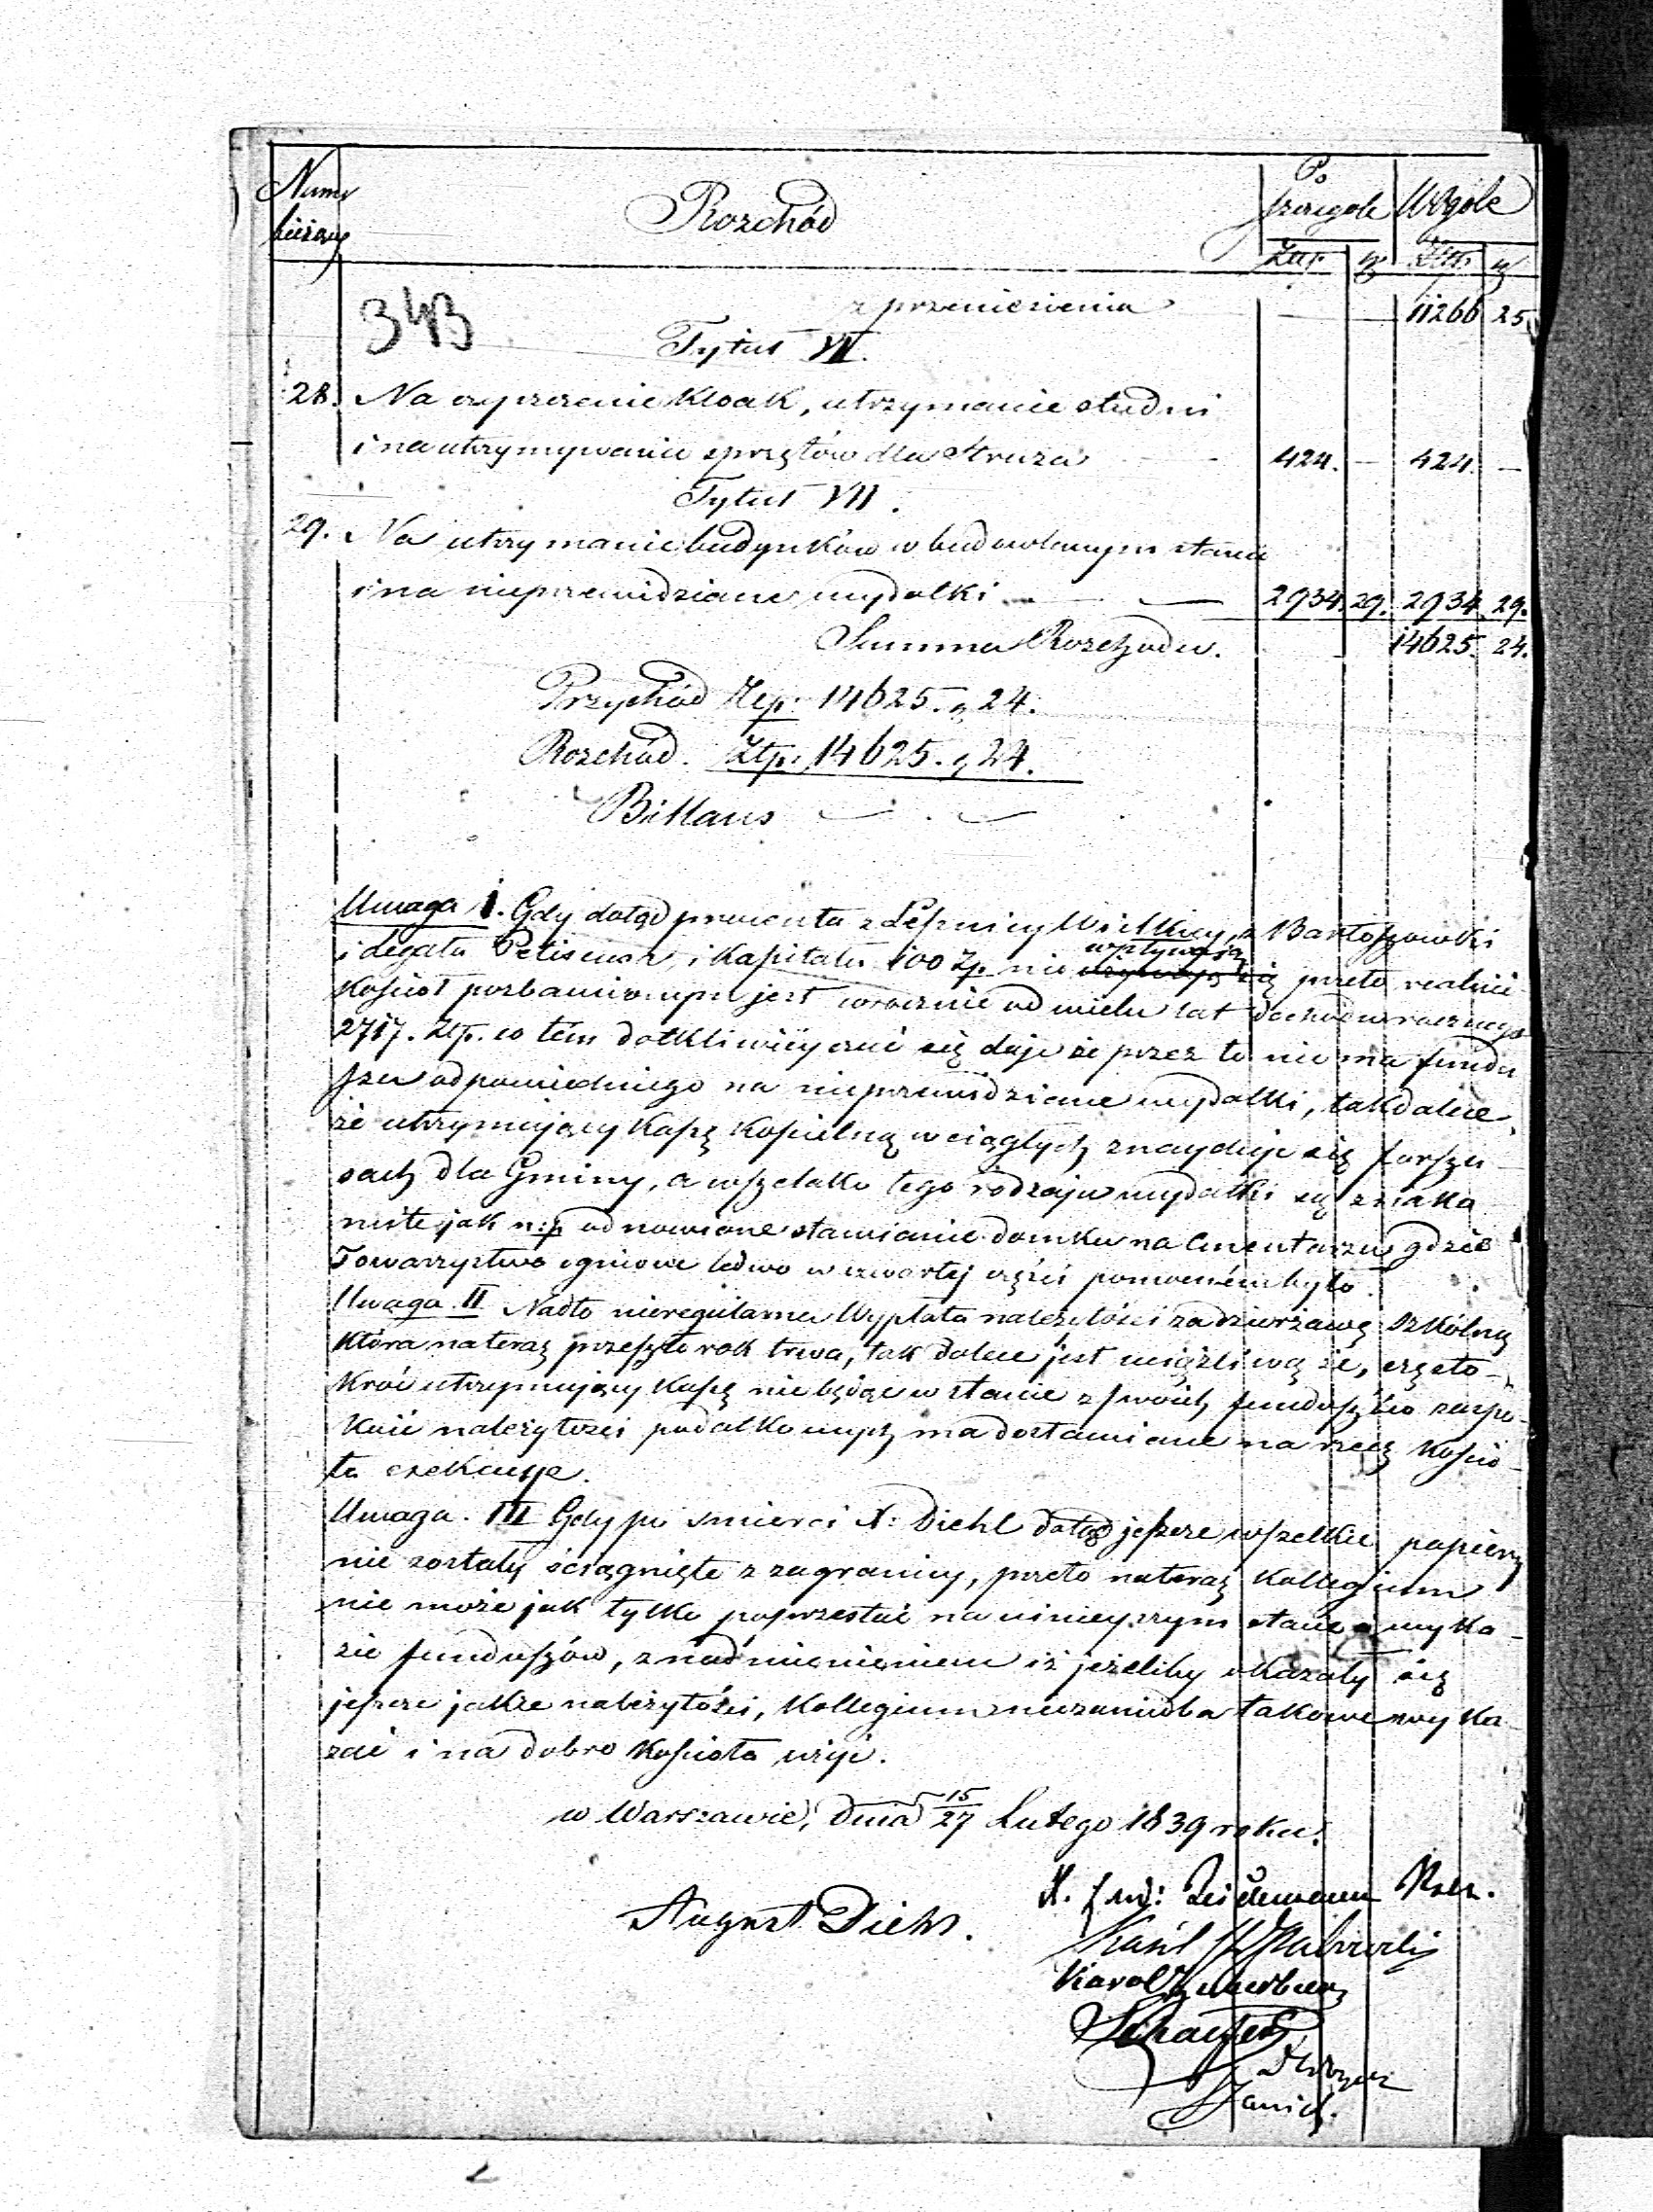 Numr bieżący
Rozchód
Po szczególe
W Ogóle
Złtp. gr Złtp. gr
343
z przeniesienia — — 11266 25
Tytuł VI.
28. Na czyszczenie kloak, utrzymanie studni
i na utrzymywanie sprzętów dla Struża — 424. — 424. —
Tytuł VII.
29. Na utrzymanie budynków w budowlanym stanie
i na nieprzewidziane wydatki — — 2934. 29. 2934. 29.
Summa Rozchodu. 14625. 24.
Przychód Złtp. 14625. g 24.
Rozchód. Złtp. 14625. g 24.
Billans — . —
Uwaga I. Gdy dotąd prowenta z Lesznicy Wielkiey, z Bartoszowki
i legatu Petiscusa, i Kapitału 100 Zł. nie wpływają przeto realnie
Kościoł pozbawionym jest corocznie od wielu lat dochodu rocznego
2717. Złp. co tém dotkliwiéy czuć się daje że przez to nie ma fundu
szu odpowiedniego na nieprzewidziane wydatki, takdalece,
że utrzymujący Kassę Kościelną w ciągłych znayduje się forszu-
sach dla Gminy, a wszelako tego rodzaju wydatki są znako
mite jak n:p odnowione stawianie domku na Cmentarzu gdzie
Towarzystwo ogniowe ledwo w czwartej części pomocném było.
Uwaga. II Nadto nieregularna Wypłata należytości za dzierżawę szkolną
Która nateraz przeszło rok trwa, tak dalece jest uciążliwą że, często-
Kroć utrzymujący Kassę nie będąc w stanie z swoich funduszów zaspo-
Koić należytości podatkowych ma dostawione na rzecz Kościo-
ła exekucye.
Uwaga. III Gdy po śmierci X: Diehl dotąd jeszcze wszelkie papiery
nie zostały ściągnięte z zagranicy, przeto nateraz Kollegium
nie może jak tylko poprzestać na ninieyszym stanie i wyka-
zie funduszów, z nadmienieniem iż jeżeliby okazały się
jeszcze jakie należytości, Kollegium niezaniedba takowe wyka-
zać i na dobro Kościoła użyć.
w Warszawie, dnia 15/27 Lutego 1839 roku.
August Diehl.
Karol
Schaeffer
Janich.